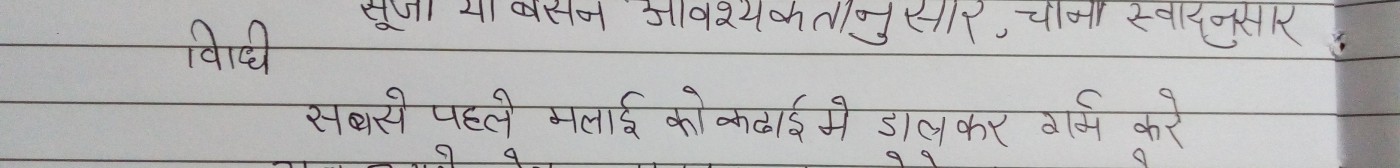 सूजी या बेसन आवश्यकतानुसार, चीनी स्वादनुसार
विधि
सबसे पहले मलाई को कढाई मे डालकर गर्म करे